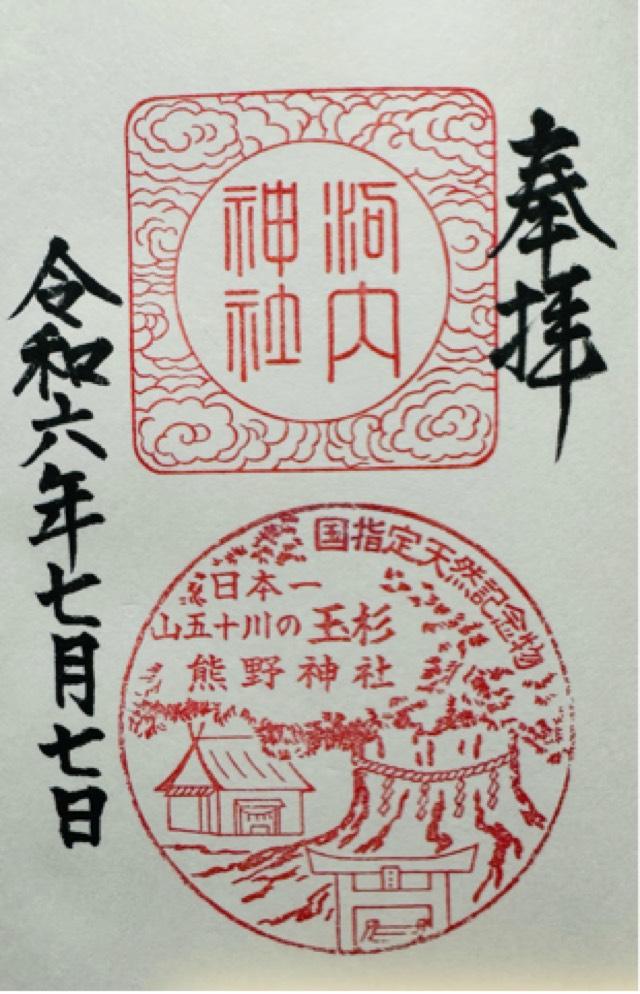 奉拝
河内
神社
国指定天然記念物
日本一
山五十川の玉杉
熊野神社
令和六年七月七日